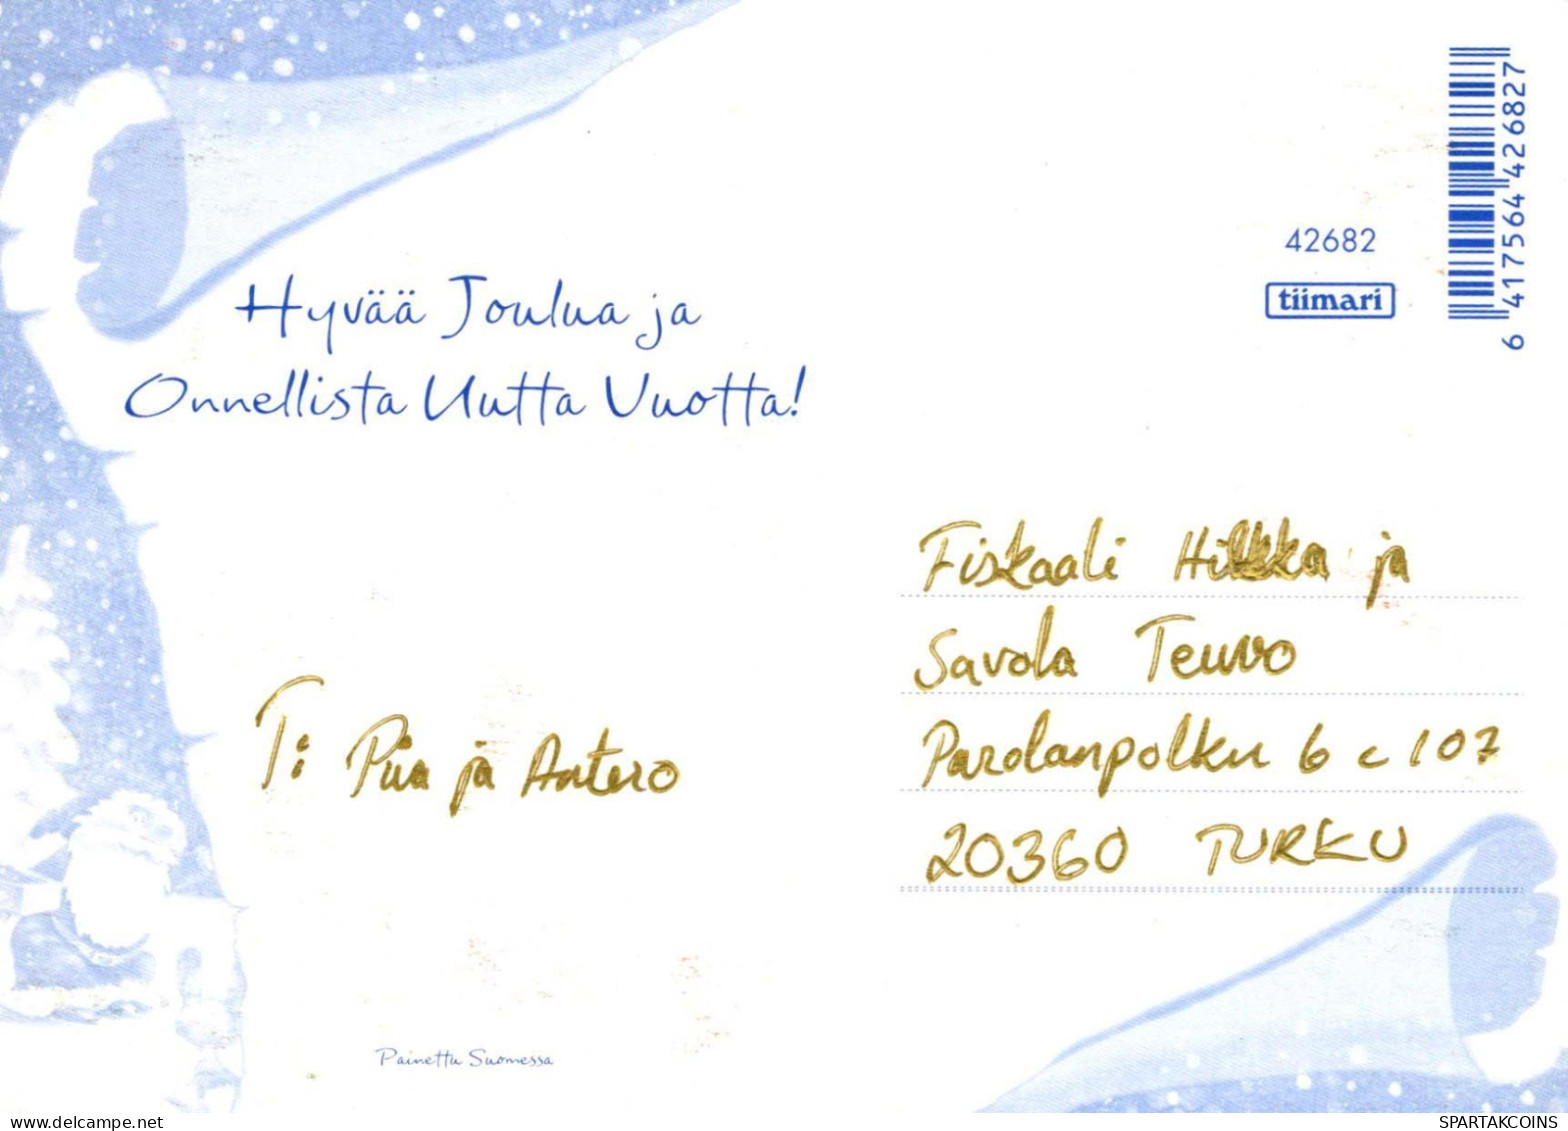 Hyvää Joulua ja
Onnellista Uutta Vuotta!
42682
tiimari
6 417564 426827
Fiskaali Hilkka ja
Savola Teuvo
Parolanpolku 6 c 107
20360 TURKU
T: Piia ja Antero
Painettu Suomessa
delcampe.net
SPARTAKCOINS